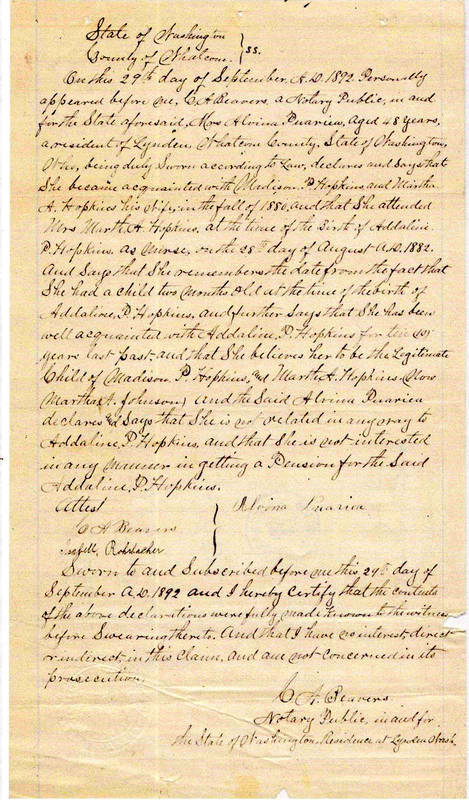 State of Washington
County of Whatcom } ss.
On this 29th day of September, A.D. 1892, Personally
appeared before me, C A Beavers, a Notary Public, in and
for the State aforesaid, Mrs Alvina Puariea, aged 48 years,
a resident of Lynden, Whatcom County, State of Washington,
Who, being duly Sworn according to Law, declares and Says that
She became acquainted with Madison. P. Hopkins and Martha
A. Hopkins his wife, in the fall of 1880, and that She attended
Mrs Martha A. Hopkins, at the time of the Birth of Addaline
P. Hopkins. as Nurse, on the 28th day of August A.D. 1882.
And Says that She remembers the date from the fact that
She had a child two months old at the time of the birth of
Addaline, P. Hopkins, and further Says that She has been
well acquainted with Addaline, P. Hopkins for ten
years last past, and that She believes her to be the Legitimate
Child of Madison, P. Hopkins, and Martha A. Hopkins (Now
Martha A. Johnson) And the Said Alvina Puariea
declares and Says that She is not related in any way to
Addaline, P. Hopkins, and that She is not interested
in any manner in getting a Pension for the Said
Addaline, P. Hopkins.
Attest } Alvina Puariea
C A Beavers
Sworn to and Subscribed before me this 29th day of
September A.D. 1892 and I hereby Certify that the contents
of the above declarations were fully made Known to the witness
before Swearing thereto. And that I have no interest, direct
or indirect, in this Claim, and am not concerned in its
prosecution.
C. A. Beavers
Notary Public, in and for
the State of Washington, Residence at Lynden Wash.